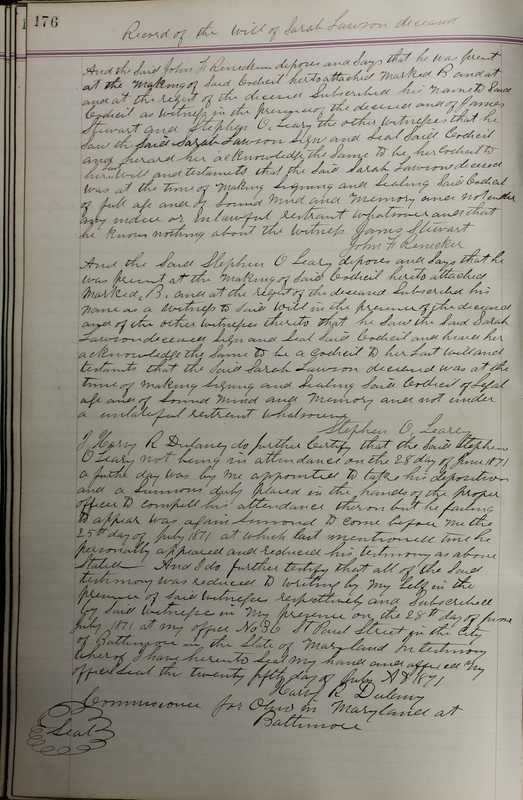 176
Record of the Will of Sarah Lawson deceased
And the Said John F Renecker deposes and Says that he was present
at the making of Said Codicil hereto attached Marked B and at
and at the request of the deceased Subscribed his name to Said
Codicil as Witness in the presence of the deceased and of James
Stewart and Stephen O. Leary the other witnesses that he
Saw the Said Sarah Lawson Sign and Seal Said Codicil
and heard her acknowledge the Same to be her Codicil to
her last Will and testament that the Said Sarah Lawson deceased
was at the time of making Signing and Sealing Said Codicil
of full age and of Sound mind and memory and not under
any undue or unlawful restrant whatsoever and that
he knows nothing about the Witness James Stewart
John F Renecker
And the Said Stephen O Leary deposes and Says that he
was present at the making of Said Codicil hereto attached
Marked, B. and at the request of the deceased Subscribed his
name as a Witness to Said Will in the presence of the deceased
and of the other Witnesses thereto that he Saw the Said Sarah
Lawson deceased Sign and Seal Said Codicil and heard her
acknowledge the Same to be a Codicil to her Last Will and
testament that the Said Sarah Lawson deceased was at the
time of making Signing and Sealing Said Codicil of Legal
age and of Sound mind and memory and not under
a unlawful restrent whatsoever
Stephen O, Leary
I Harry R Dulaney do further Certify that the Said Stephen
O Leary not being in attendance on the 28 day of June 1871
a futhe day was by me appointed to take his deposition
and a Summons duly placed in the hands of the proper
officer to compell his attendance theron but he failing
to appear was again Summond to come before me the
25th day of July 1871 at which last mentioned time he
personally appeared and reduced his testimony as above
Stated And I do further testify that all of the Said
testimony was reduced to writing by my Self in the
presence of Said Witnesses respectively and Subscribed
by Said Witnesses in my presence on the 28th day of June
July 1871 at my office No 36 St Paul Street in the City
of Baltimore in the State of Maryland In testimony
wherof I have hereunto Seal my hand and affixed my
official Seal the twenty fifth day of July A D 1871
Harry R Dulany
Commissioner for Ohio in Maryland at
Baltimore
Seal